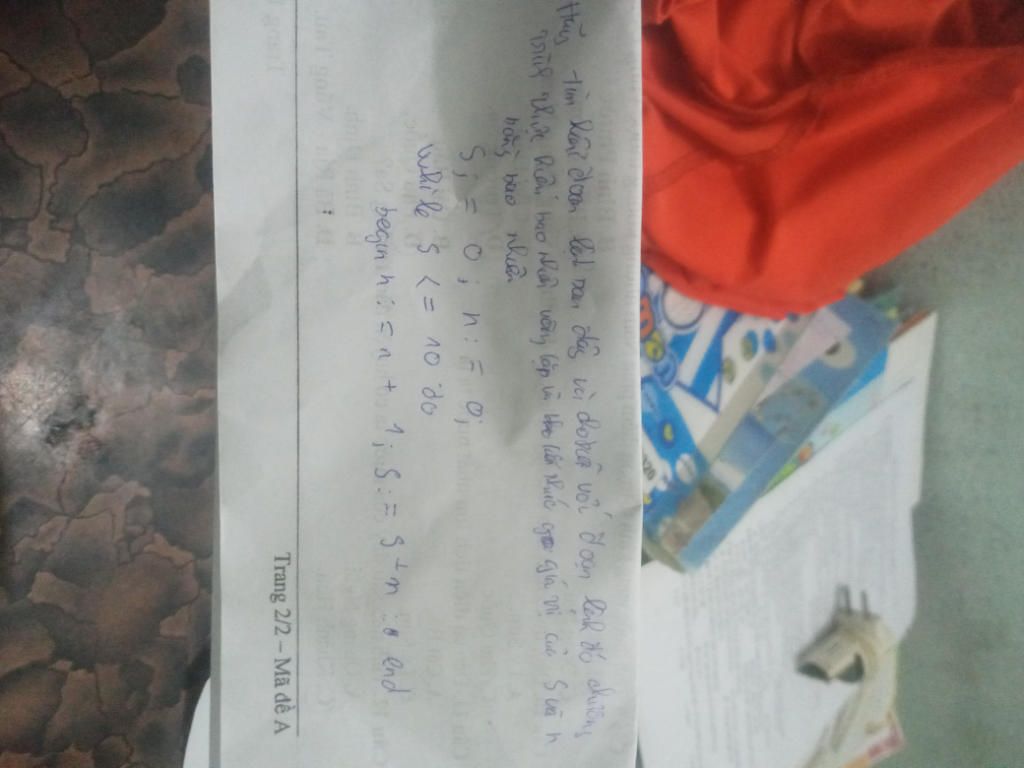 Hãy tìm hiểu đoạn lệnh sau đây và cho biết với đoạn lệnh đó chương
trình thực hiện bao nhiêu vòng lặp và khi kết thúc giá trị của S và n
bằng bao nhiêu
S: = 0; n: = 0;
While S < = 10 do
begin n: = n + 1; S: = S + n; end
Trang 2/2 – Mã đề A
120